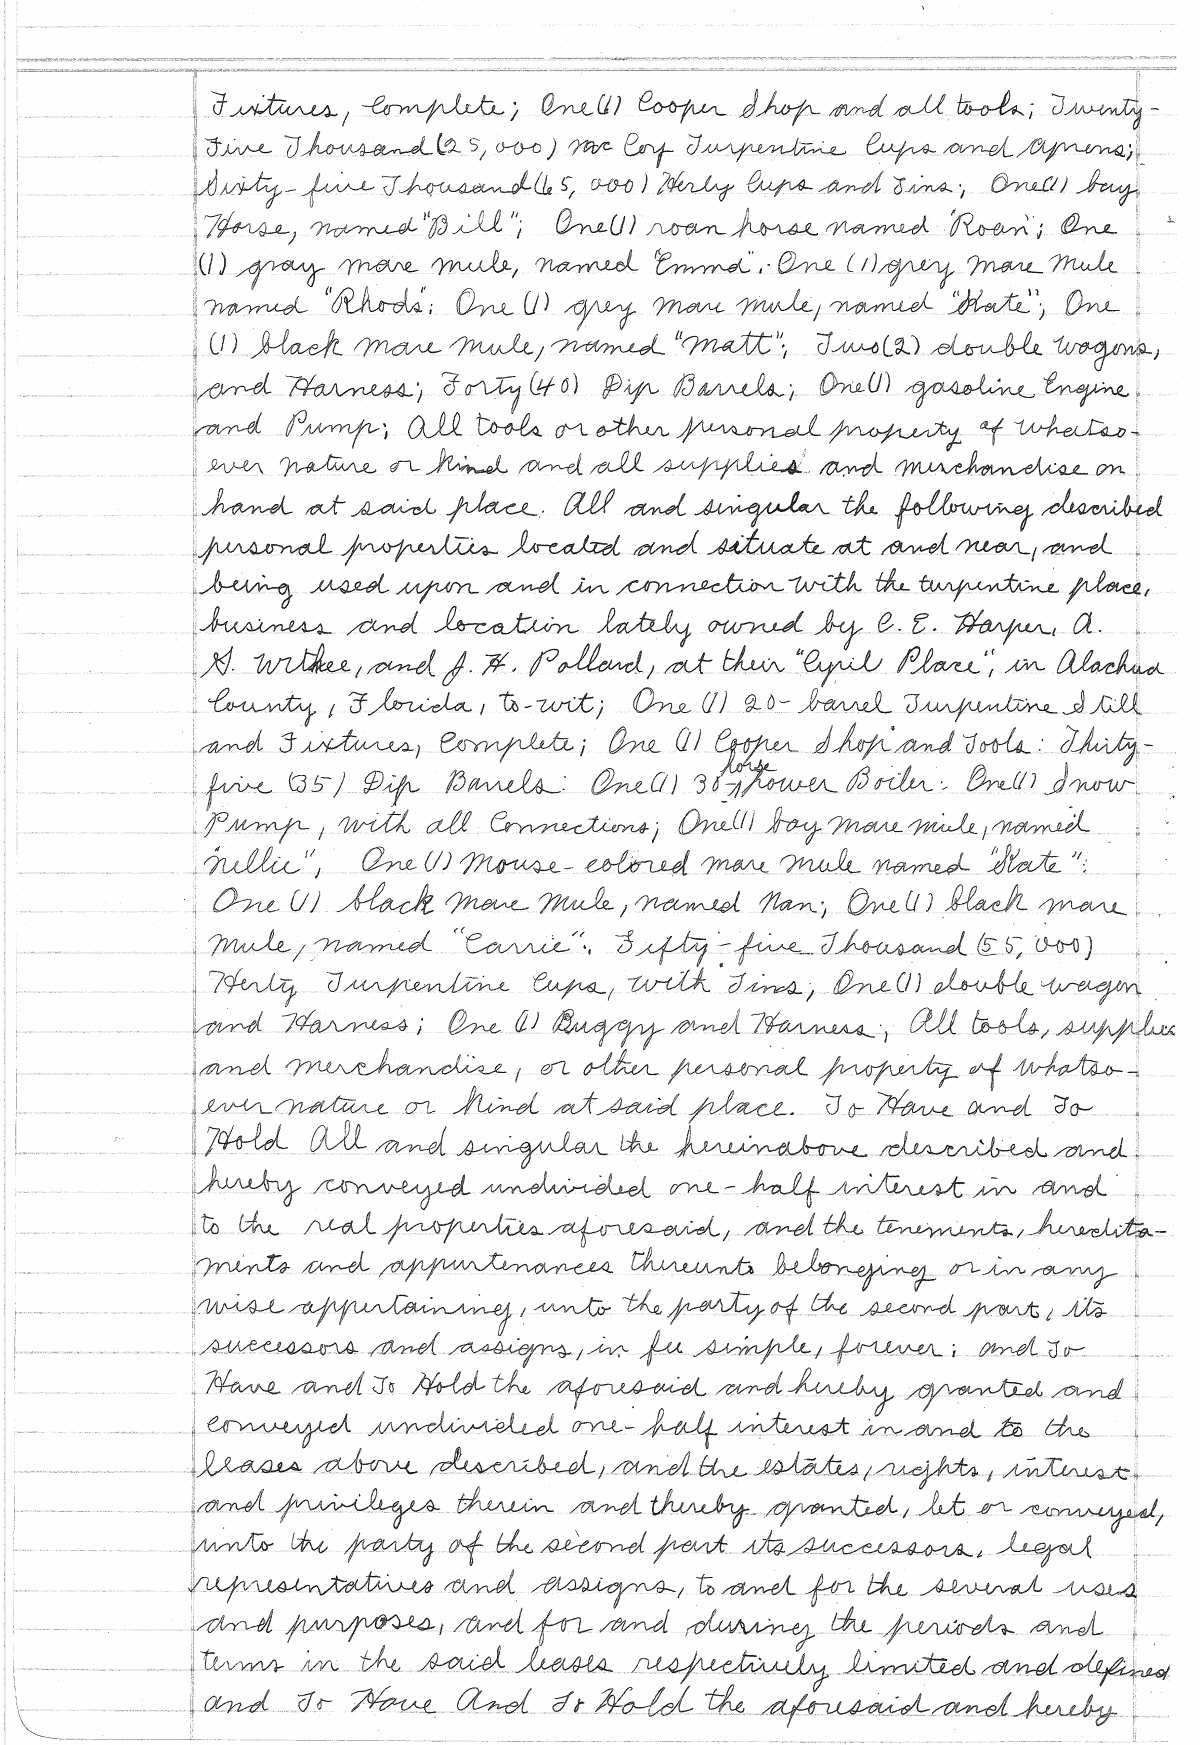 Fixtures, Complete; One (1) Cooper Shop and all tools; Twenty-
Five Thousand (25,000) Mc Coy Turpentine Cups and Aprons;
Sixty-five Thousand (65,000) Herly Cups and Tins; One (1) bay
Horse, named "Bill"; One (1) roan horse named "Roan"; One
(1) gray mare mule, named "Emma". One (1) grey Mare Mule
named "Rhods"; One (1) grey mare mule, named "Kate"; One
(1) black mare mule, named "Matt"; Two (2) double wagons,
and Harness; Forty (40) Dip Barrels; One (1) gasoline Engine
and Pump; All tools or other personal property of whatso-
ever nature or kind and all supplies and merchandise on
hand at said place. All and singular the following described
personal properties located and situate at and near, and
being used upon and in connection with the turpentine place,
business and location lately owned by C. E. Harper, A.
S. , and J. H. Pollard, at their "Cyril Place", in Alachua
County, Florida, to-wit; One (1) 20-barrel Turpentine Still
and Fixtures, Complete; One (1) Cooper Shop and Tools: Thirty-
five (35) Dip Barrels: One (1) 30-horse power Boiler: One (1) Snow
Pump, with all Connections; One (1) bay mare mule, named
"Nellie", One (1) Mouse-colored mare mule named "Kate":
One (1) black mare mule, named Nan; One (1) black mare
Mule, named "Carrie". Fifty-five Thousand (55,000)
Herty Turpentine Cups, with Tins; One (1) double wagon
and Harness; One (1) Buggy and Harness; All tools, supplies
and merchandise, or other personal property of whatso-
ever nature or kind at said place. To Have and To
Hold All and singular the hereinabove described and
hereby conveyed undivided one-half interest in and
to the real properties aforesaid, and the tenements, heredita-
ments and appurtenances thereunto belonging or in any
wise appertaining, unto the party of the second part, its
successors and assigns, in fee simple, forever; and To
Have and To Hold the aforesaid and hereby granted and
conveyed undivided one-half interest in and to the
leases above described, and the estates, rights, interest
and privileges therein and thereby granted, let or conveyed,
unto the party of the second part its successors, legal
representatives and assigns, to and for the several uses
and purposes, and for and during the periods and
terms in the said leases respectively limited and defined
and To Have And To Hold the aforesaid and hereby